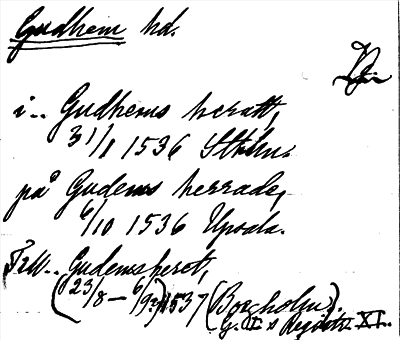 Gudhem hd.
i.. Gudhems heratt,
31/1 1536 Sthlm.
på Gudems herrade,
6/10 1536 Upsala.
Till.. Gudemsheret,
(23/8 — 6/9) 1537 (Borgholm).
G. I:s Registr. XI..